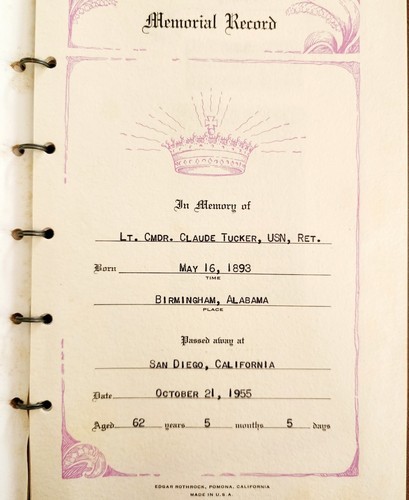 Memorial Record
In Memory of
LT. CMDR. CLAUDE TUCKER, USN, RET.
Born MAY 16, 1893
TIME
BIRMINGHAM, ALABAMA
PLACE
Passed away at
SAN DIEGO, CALIFORNIA
Date OCTOBER 21, 1955
Aged 62 years 5 months 5 days
EDGAR ROTHROCK, POMONA, CALIFORNIA
MADE IN U.S.A.